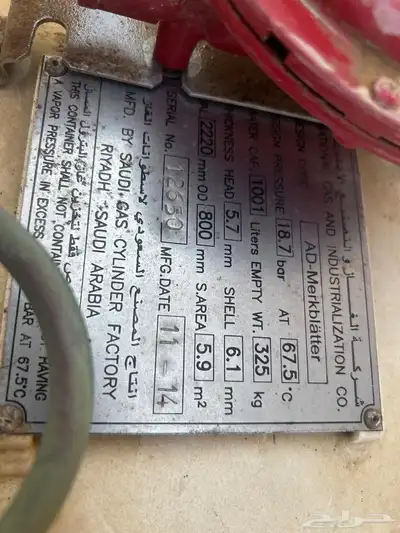 شركة الغاز والتصنيع الا
GAS AND INDUSTRIALIZATION CO.
AD-Merkblätter
PRESSURE 18.7 bar AT 67.5 °C
CAP. 1001 Liters EMPTY WT. 325 kg
HEAD 5.7 mm SHELL 6.1 mm
2220 mm OD 800 mm S.AREA 5.9 m²
SERIAL No. 12650 MFG.DATE 11-14
انتاج المصنع السعودي لاسطوانات الغاز
MFD. BY SAUDI GAS CYLINDER FACTORY
RIYADH, SAUDI ARABIA
THIS CONTAINER SHALL NOT CONTAIN HAVING
A VAPOR PRESSURE IN EXCESS BAR AT 67.5°C
حراج